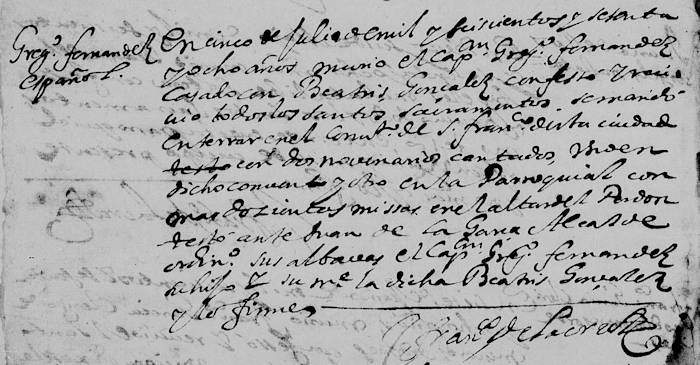 Greg.º fernandez
español.
En cinco de julio de mil y seisientos y setenta
y ocho años murio el Cap.an Greg.º fernandez
Casado con Beatris Gonçalez confesó y reci
vio todos los santos sacramentos. se mandó
enterrar en el Conv.to de S. fran.co desta ciudad
testó con dos novenarios cantados, Uno en
dicho convento y otro en la Parroquial con
mas dozientas missas en el altar del Perdon
testó ante Juan de la Garça Alcalde
ordin.º sus albaceas el Cap.an Greg.º fernandez
su hijo y su m.e la dicha Beatris Gonçalez
y lo firme
Fran.co de la